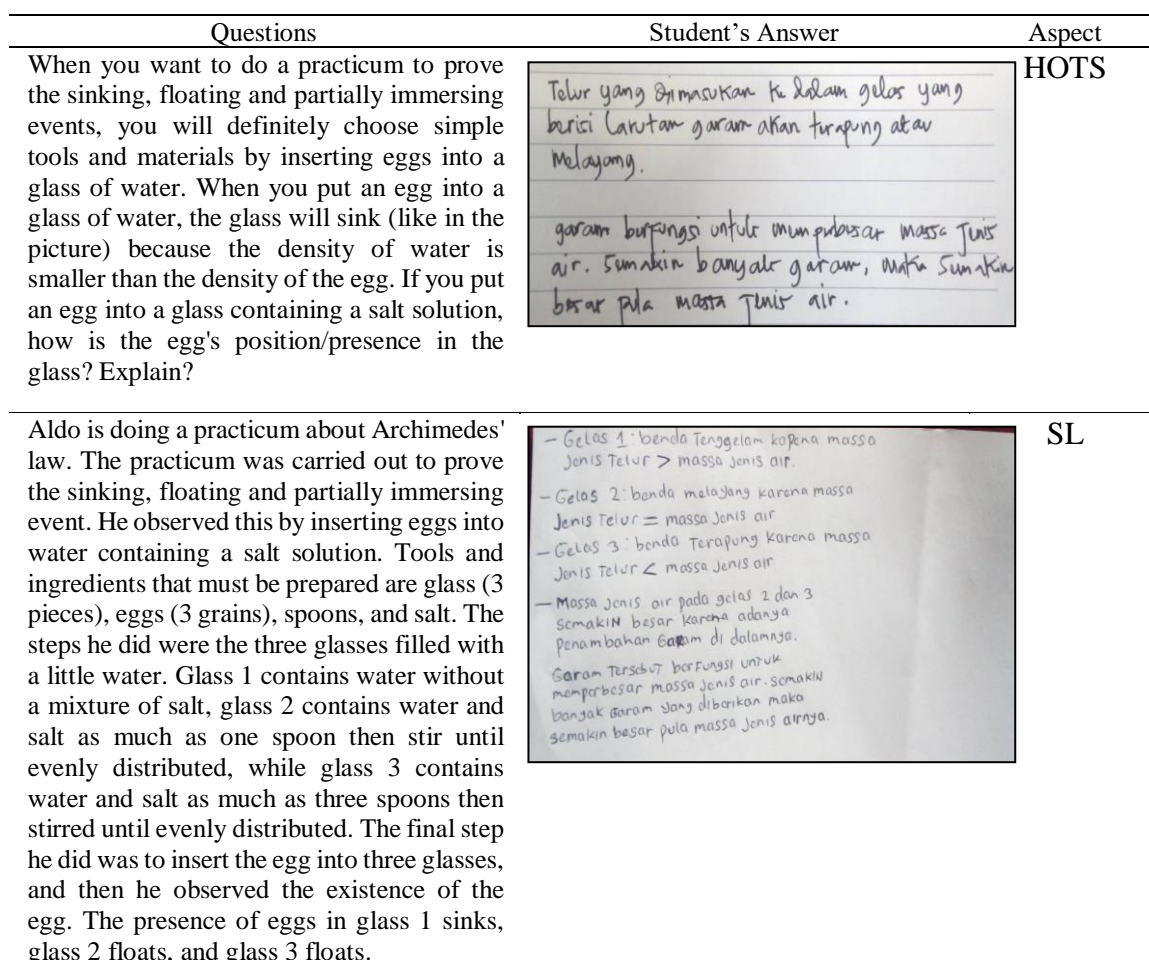 Questions Student's Answer Aspect
When you want to do a practicum to prove
the sinking, floating and partially immersing
events, you will definitely choose simple
tools and materials by inserting eggs into a
glass of water. When you put an egg into a
glass of water, the glass will sink (like in the
picture) because the density of water is
smaller than the density of the egg. If you put
an egg into a glass containing a salt solution,
how is the egg's position/presence in the
glass? Explain?
Telur yang dimasukan ke dalam gelas yang
berisi larutan garam akan terapung atau
melayang.
garam berfungsi untuk memperbesar massa jenis
air. Semakin banyak garam, maka semakin
besar pula massa jenis air.
HOTS
Aldo is doing a practicum about Archimedes'
law. The practicum was carried out to prove
the sinking, floating and partially immersing
event. He observed this by inserting eggs into
water containing a salt solution. Tools and
ingredients that must be prepared are glass (3
pieces), eggs (3 grains), spoons, and salt. The
steps he did were the three glasses filled with
a little water. Glass 1 contains water without
a mixture of salt, glass 2 contains water and
salt as much as one spoon then stir until
evenly distributed, while glass 3 contains
water and salt as much as three spoons then
stirred until evenly distributed. The final step
he did was to insert the egg into three glasses,
and then he observed the existence of the
egg. The presence of eggs in glass 1 sinks,
glass 2 floats, and glass 3 floats.
- Gelas 1: benda Tenggelam karena massa
Jenis Telur > massa jenis air.
- Gelas 2: benda melayang karena massa
Jenis Telur = massa Jenis air
- Gelas 3: benda Terapung karena massa
Jenis Telur < massa Jenis air
- Massa Jenis air pada gelas 2 dan 3
semakin besar karena adanya
penambahan Garam di dalamnya.
Garam Tersebut berfungsi untuk
memperbesar massa Jenis air. semakin
banyak Garam yang diberikan maka
semakin besar pula massa Jenis airnya.
SL